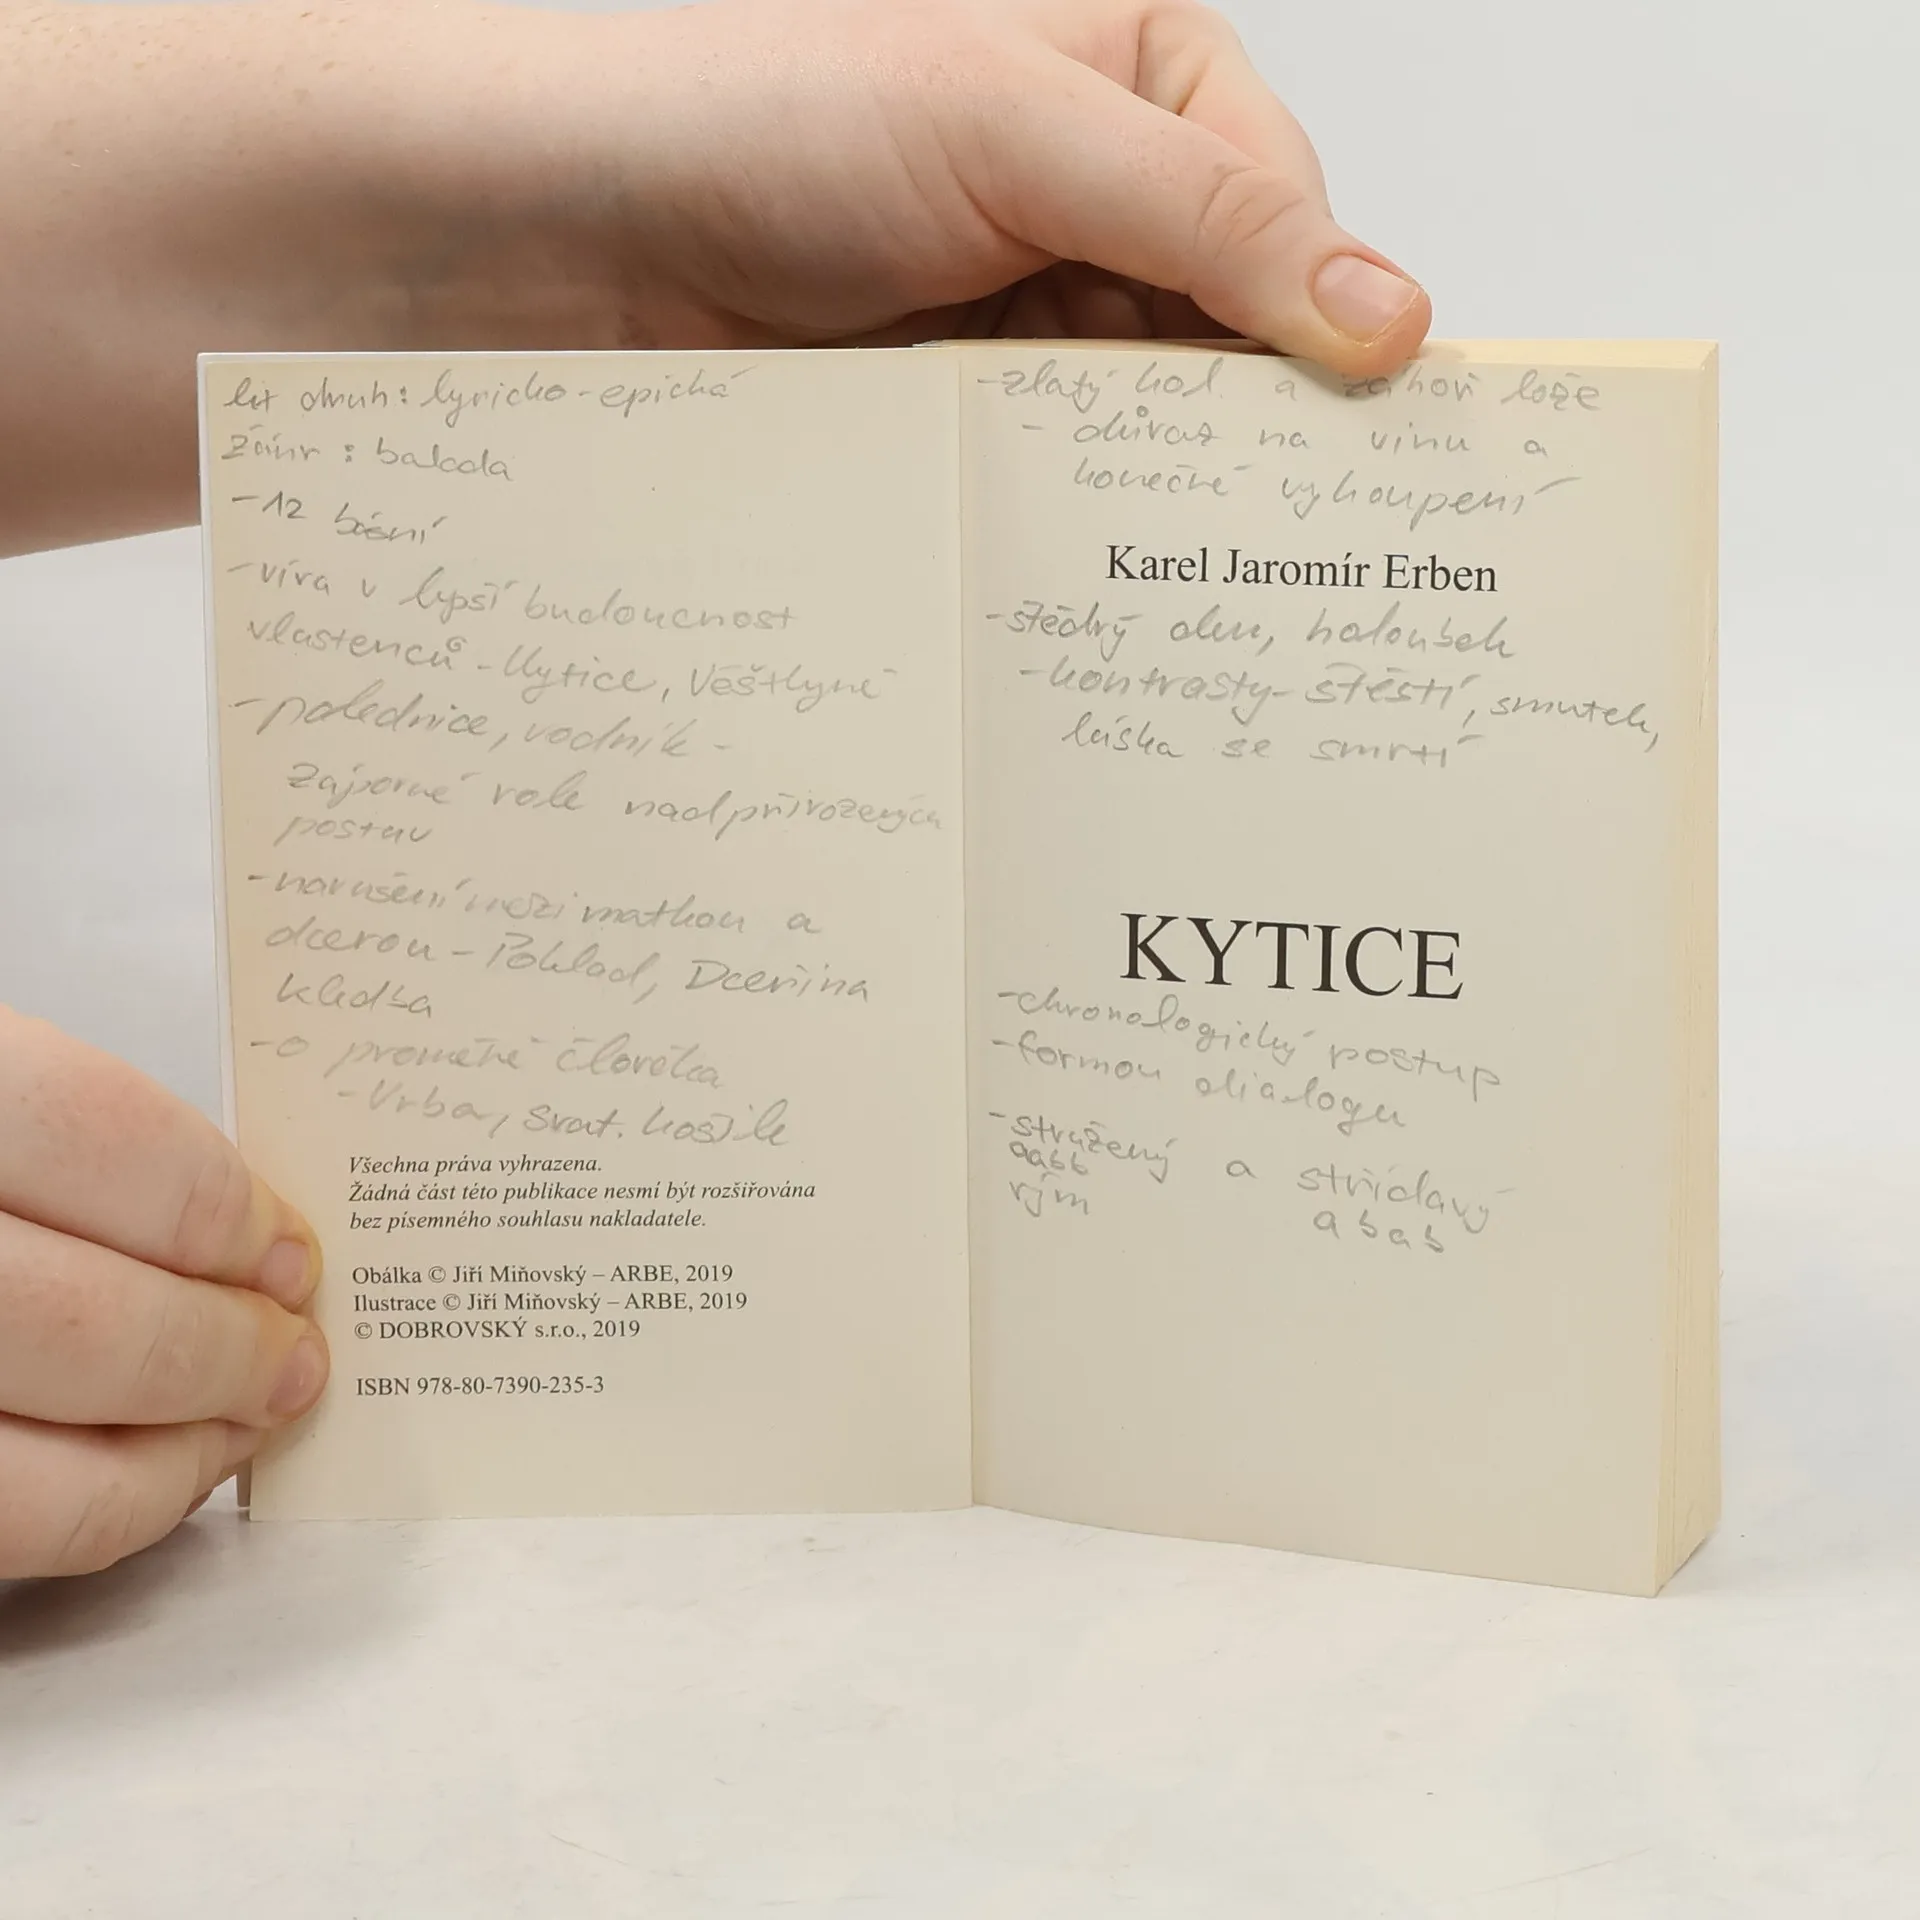 lit druh: lyricko-epická
žánr: balada
-12 básní
-víra v lepší budoucnost
vlastenců - Kytice, Věštkyně
-polednice, vodník -
záporné role nadpřirozených
postav
-narušení mezi matkou a
dcerou - Poklad, Dceřina
kledba
-o proměně člověka
-Vrba, svat. košile
Všechna práva vyhrazena.
Žádná část této publikace nesmí být rozšiřována
bez písemného souhlasu nakladatele.
Obálka © Jiří Miňovský – ARBE, 2019
Ilustrace © Jiří Miňovský – ARBE, 2019
© DOBROVSKÝ s.r.o., 2019
ISBN 978-80-7390-235-3
-zlatý kol. a záhoř lože
- důraz na vinu a
konečné vykoupení
Karel Jaromír Erben
-štědrý den, holoubek
-kontrasty- štěstí, smutek,
láska se smrtí
KYTICE
-chronologický postup
-formou dialogu
-stružený a střídavý
aabb
rým
abab